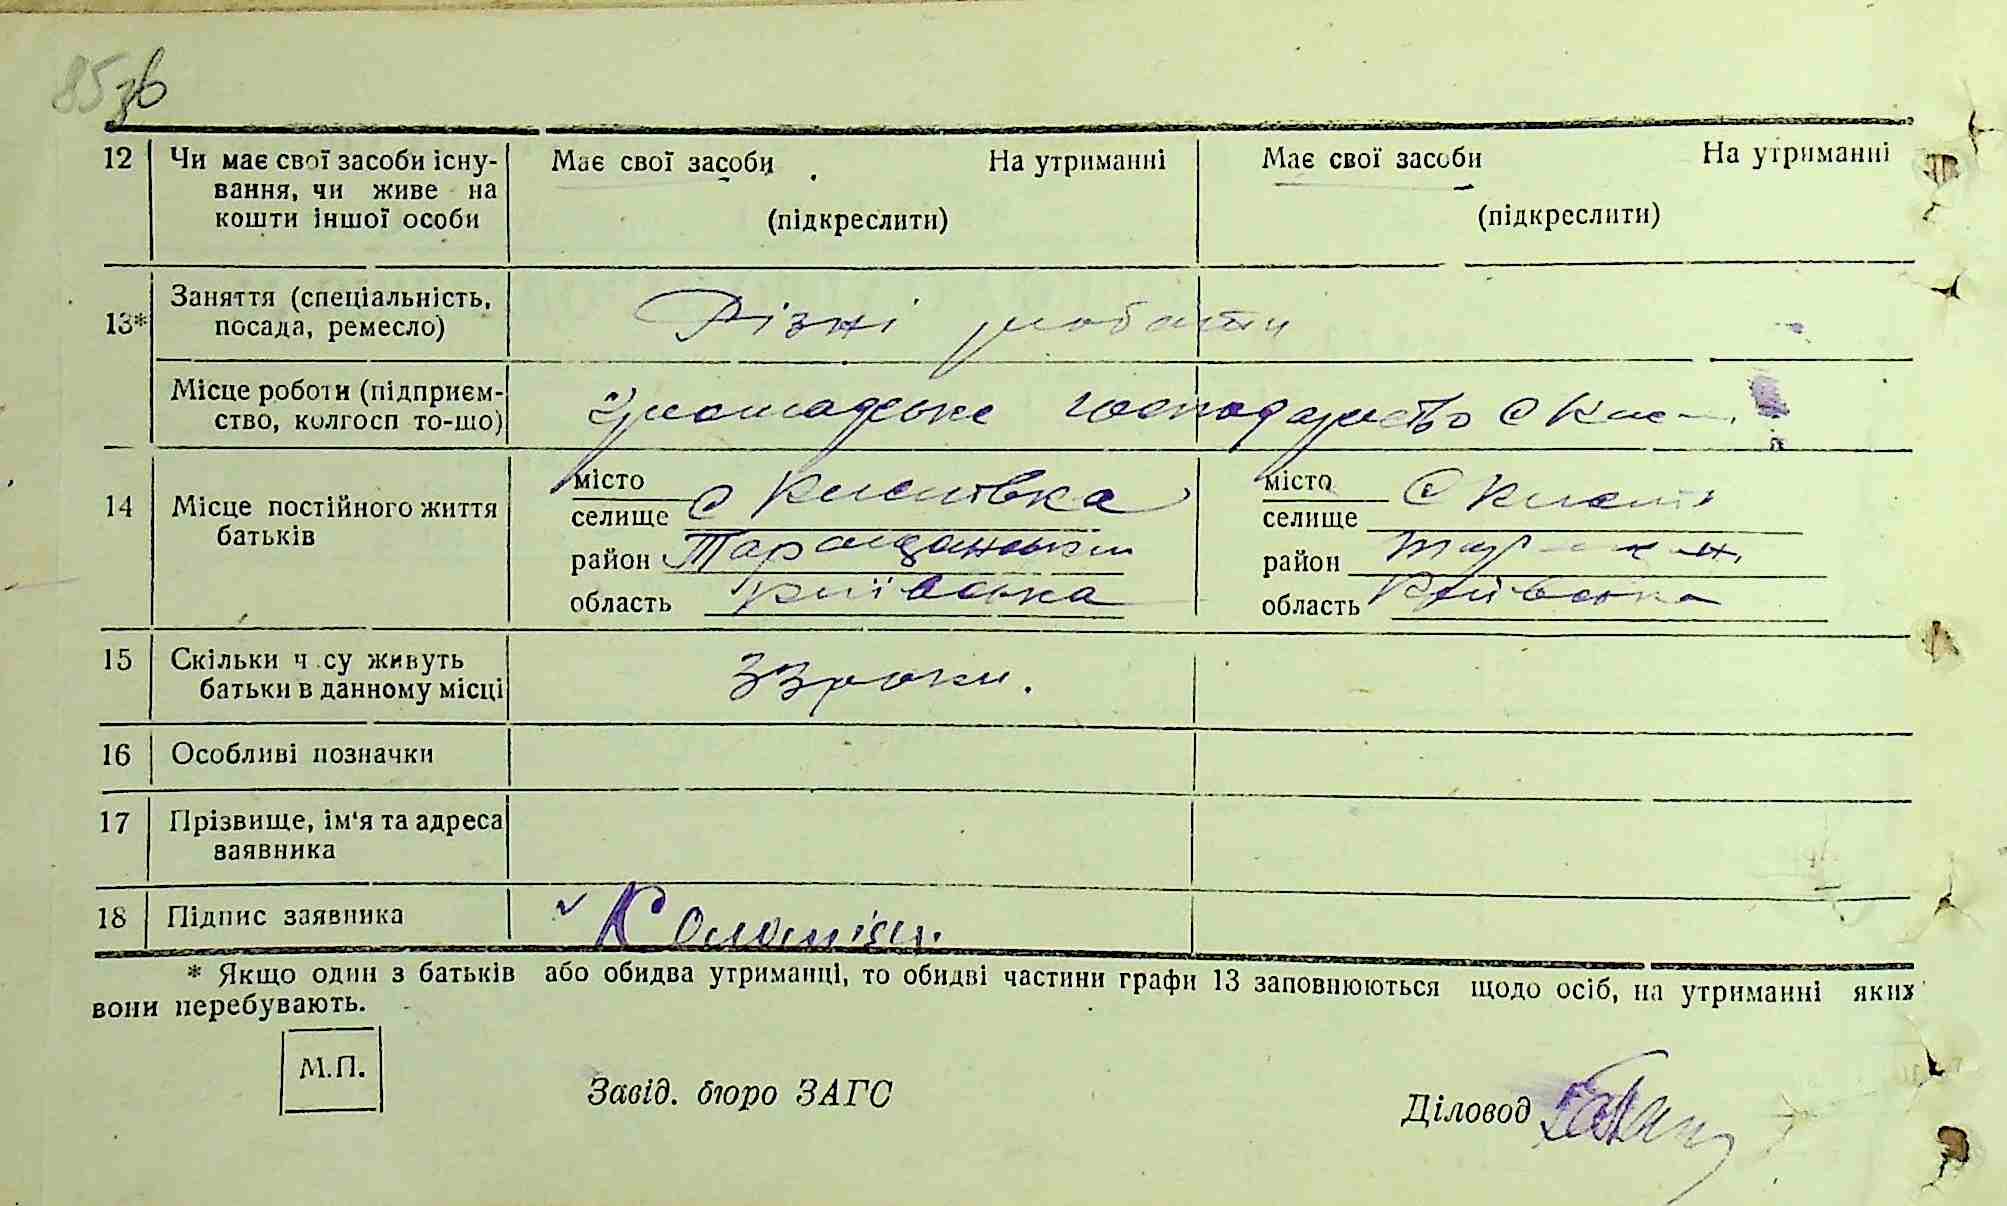 85зв
12 Чи має свої засоби існу- Має свої засоби На утриманні Має свої засоби На утриманні
вання, чи живе на
кошти іншої особи (підкреслити) (підкреслити)
13* Заняття (спеціальність,
посада, ремесло) Різні роботи
Місце роботи (підприєм-
ство, колгосп то-що) громадське господарство с
14 Місце постійного життя
батьків
місто місто
селище с селище с
район Таращанський район
область Київська область Київська
15 Скільки ч су живуть
батьки в данному місці 33 роки.
16 Особливі позначки
17 Прізвище, ім'я та адреса
заявника
18 Підпис заявника
* Якщо один з батьків або обидва утриманці, то обидві частини графи 13 заповнюються щодо осіб, на утриманні яких
вони перебувають.
М.П.
Завід. бюро ЗАГС
Діловод